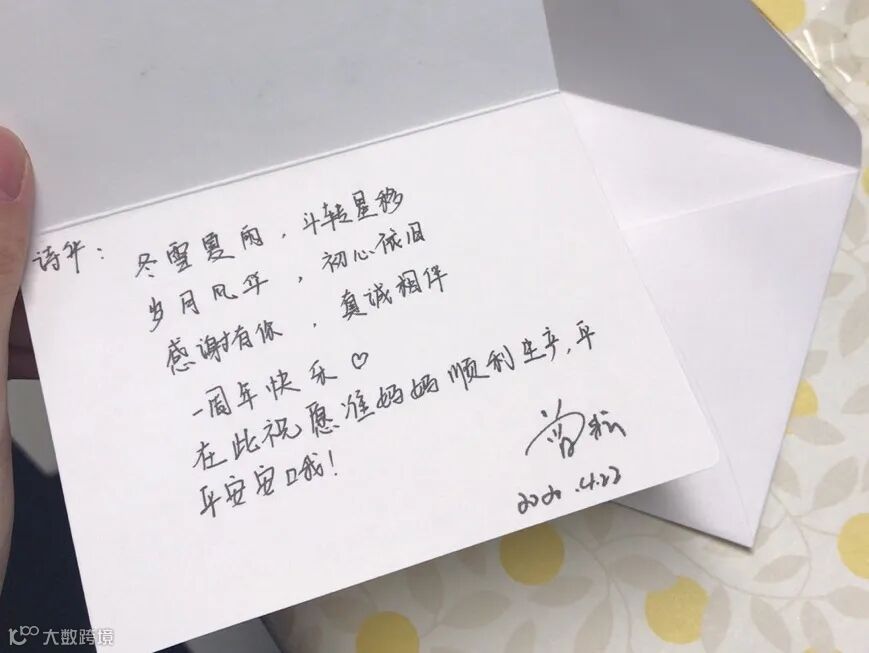 诗升：
冬雪夏雨，斗转星移
岁月风华，初心依旧
感谢有你，真诚相伴
一周年快乐♡
在此祝愿准妈妈顺利生产，平
平安安哦！
2020.4.22
大数跨境